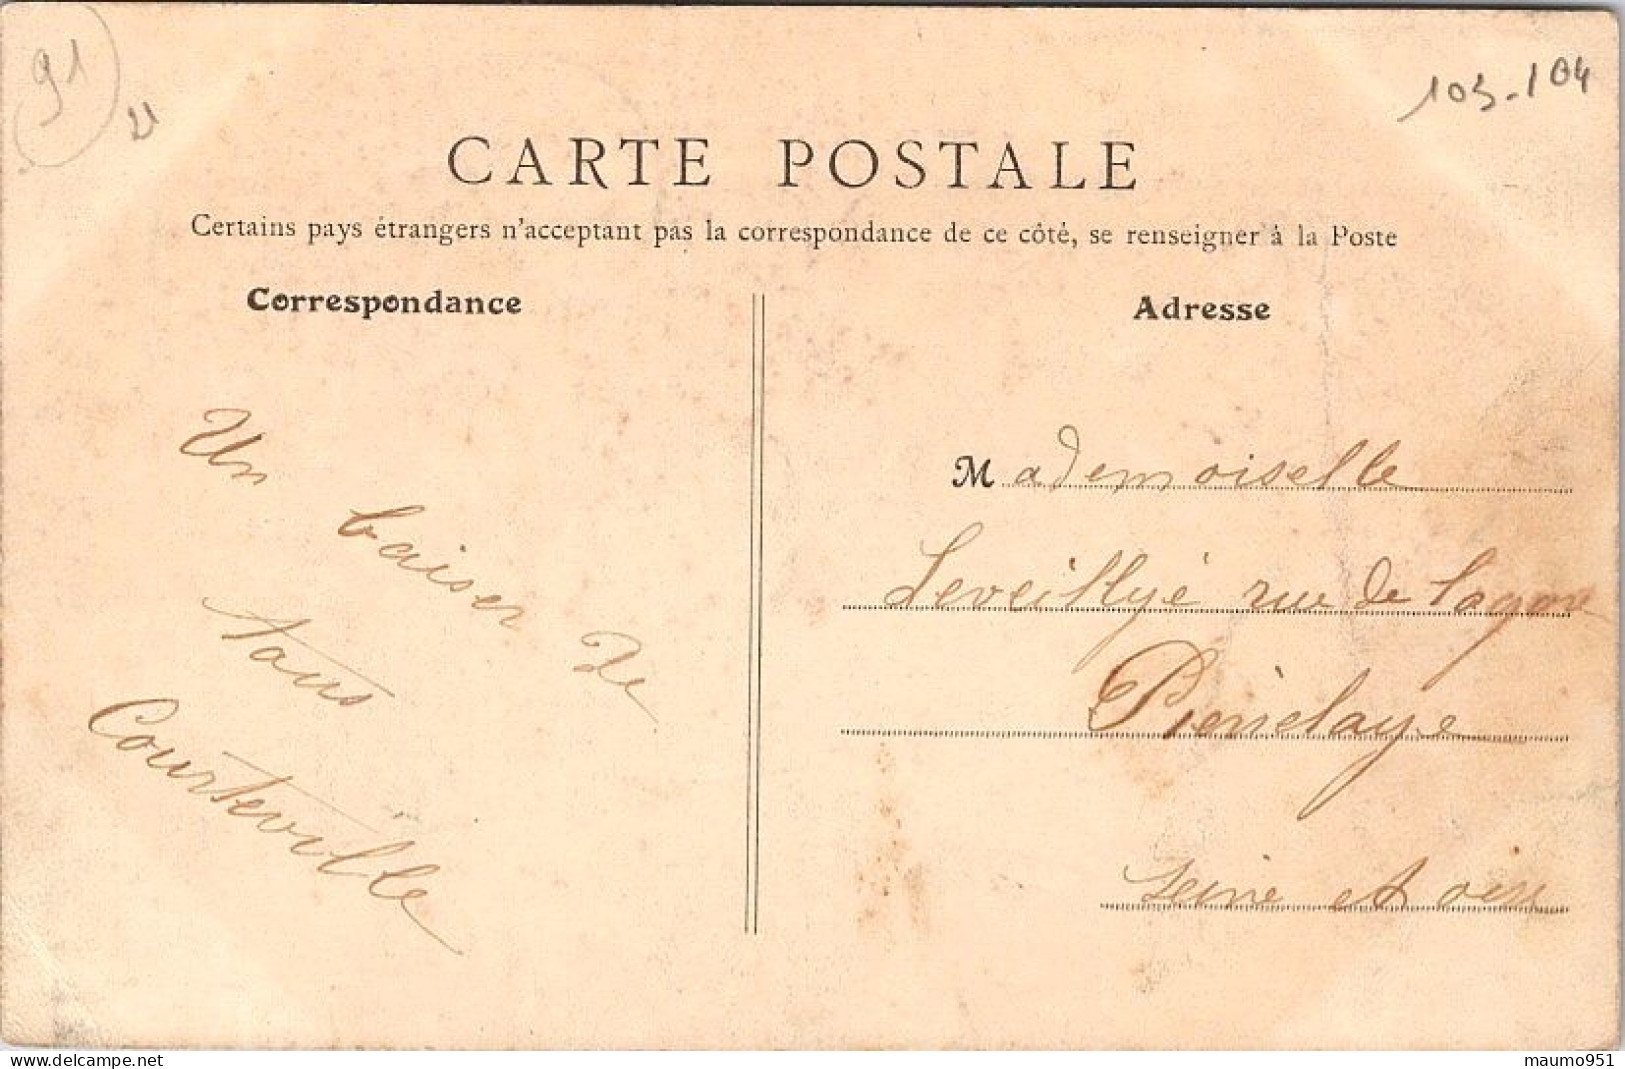 91
103-104
CARTE POSTALE
Certains pays étrangers n'acceptant pas la correspondance de ce côté, se renseigner à la Poste
Correspondance
Adresse
Un baiser de
tous
Courteville
Mademoiselle
Leveillyé rue de
Pierrelaye
Seine et oise
delcampe.net
maumo951